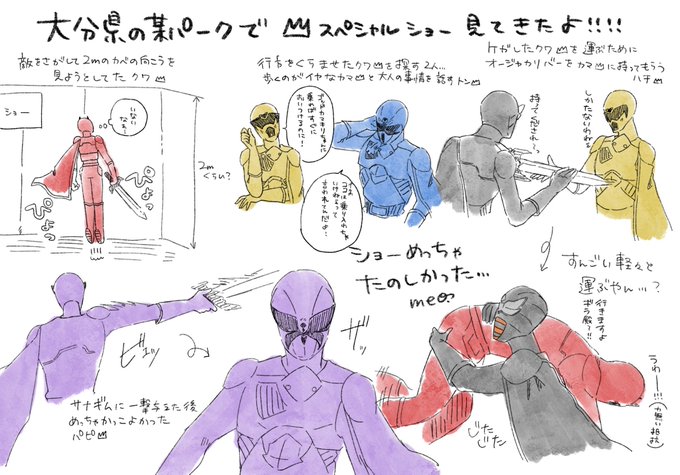 大分県の某パークで👑スペシャルショー 見てきたよ!!!!
敵をさがして2mのカベの向こうを
見ようとしてたクワ👑
ショー
いない
なぁ?
ぴょっ
ぴょっ
2m
ぐらい?
行方をくらませたクワ👑を探す2人…
歩くのがイヤなカマ👑と大人の事情を話すトン👑
乗ればすぐに
おいつけるのに!
ココは乗り入れちゃ
いけねぇって
言われてんだよ!
ケガしたクワ👑を運ぶために
オージャカリバーをカマ👑に持ってもらう
ハチ👑
持ってください
しかたないわねぇ
すんごい軽々と
運ぶやん…?
行きますよ
ギラ殿っ!!
うわー!!!
(力無い抵抗)
じたじた
ショーめっちゃ
たのしかった…
ビュッ
ザッ
サナギムに一撃与えた後
めっちゃかっこよかった
パピ👑